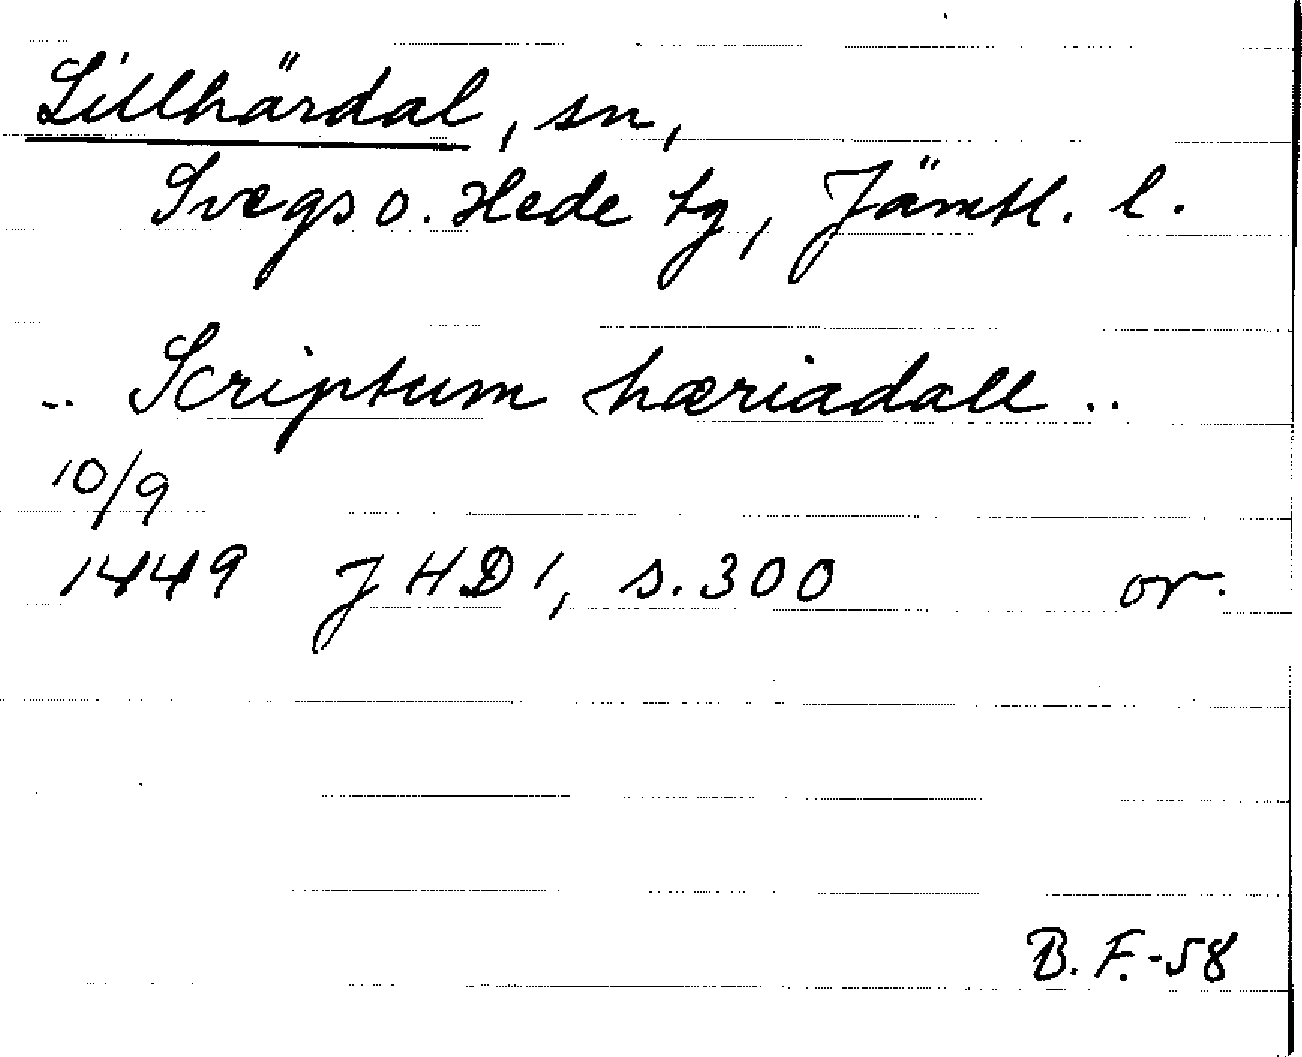 Lillhärdal, sn,
Svegs o. Hede tg, Jämtl. l.
.. Scriptum hæriadall ..
10/9
1449 JHD 1, s. 300 or.
B. F. -58